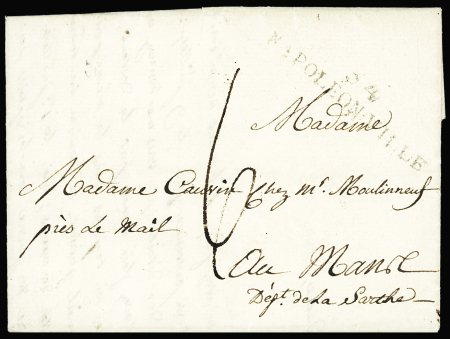 84
NAPOLEONVILLE
Madame
Madame Cauvin Chez mr. Moulinneuf
près Le Mail
6
au Mans
Dépt. de la Sarthe